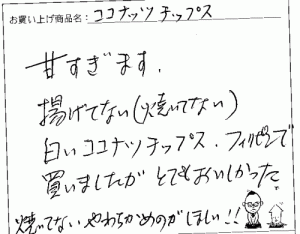 お買い上げ商品名：ココナッツチップス
甘すぎます．
揚げてない(焼いてない)
白いココナツチップス．フィリピンで
買いましたが とてもおいしかった。
焼いてない やわらかめのがほしい!!